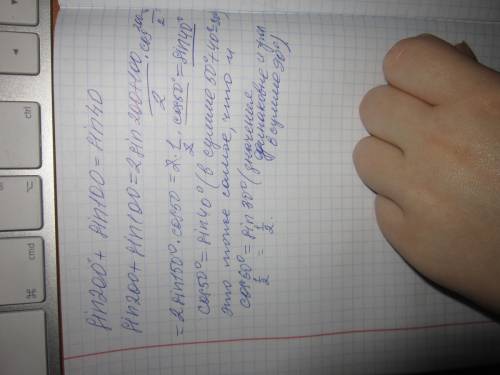 sin200 + sin100 = sin40
sin200 + sin100 = 2 sin (200+100)/2 · cos (200-100)/2
= 2 sin150° · cos50 = 2 · 1/2 · cos50° = sin40°
cos50° = sin40° (в сумме 50°+40°=90°
это тоже самое, что и
cos60° = sin30° (значения
1/2 = 1/2. одинаковые и при
в сумме 90°)
ctrl
cmd
⌘